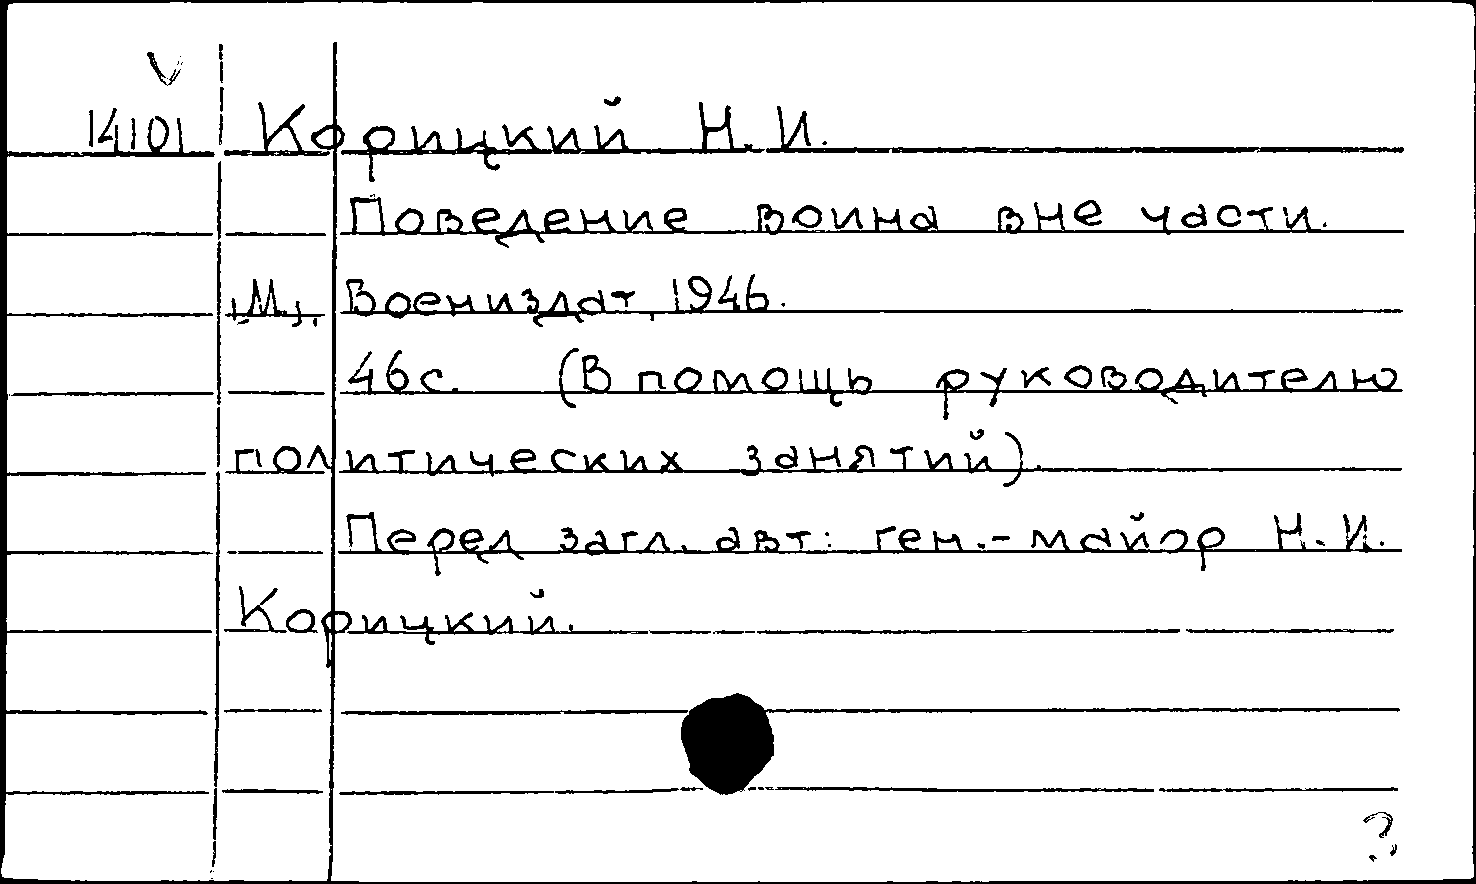 V
14101 Корицкий Н.И.
Поведение воина вне части.
[М.], Воениздат, 1946.
46с. (В помощь руководителю
политических занятий).
Перед загл. авт: ген.-майор Н.И.
Корицкий.
?